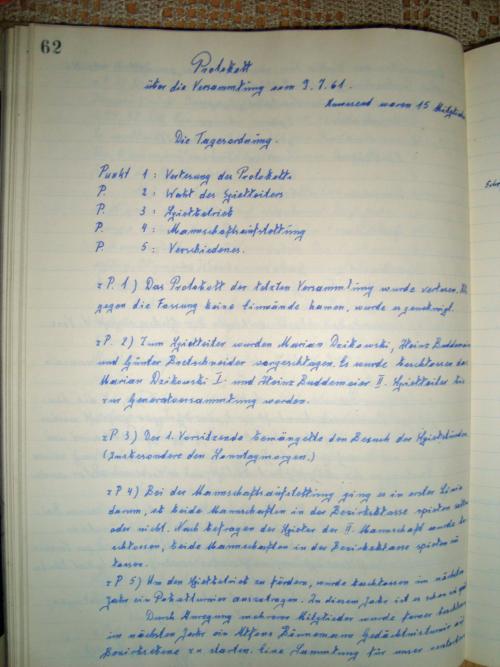 62
Protokoll
über die Versammlung vom 9.7.61.
Anwesend waren 15 Mitglieder
Die Tagesordnung.
Punkt 1: Verlesung des Protokolls
P. 2: Wahl des Spielleiters
P. 3: Spielbetrieb
P. 4: Mannschaftsaufstellung
P. 5: Verschiedenes.
z P. 1) Das Protokoll der letzten Versammlung wurde verlesen. Da
gegen die Fassung keine Einwände kamen, wurde es genehmigt.
z P. 2) Zum Spielleiter wurden Marian Dzikowski, Heinz Buddemeier
und Günter Bretschneider vorgeschlagen. Es wurde beschlossen das
Marian Dzikowski I. und Heinz Buddemeier II. Spielleiter bis
zur Generalversammlung werden.
z P. 3) Der 1. Vorsitzende bemängelte den Besuch der Spielstunden
(Insbesondere den Sonntagmorgen.)
z P 4) Bei der Mannschaftsaufstellung ging es in erster Linie
darum, ob beide Mannschaften in der Bezirksklasse spielen sollen
oder nicht. Nach befragen der Spieler der II. Mannschaft wurde be-
schlossen, beide Mannschaften in der Bezirksklasse spielen zu
lassen.
z P. 5) Um den Spielbetrieb zu fördern, wurde beschlossen im nächsten
Jahr ein Pokalturnier auszutragen. In diesem Jahr ist es schon zu spät
Durch Anregung mehrerer Mitglieder wurde ferner beschlossen
im nächsten Jahr ein Alfons Gedächtnisturnier auf
Bezirksebene zu starten. Eine Sammlung für unser